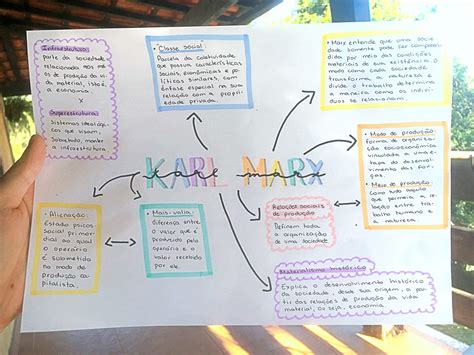 Infraestrutura:
parte da sociedade
relacionada aos mei
os de produção da vi
da material, isto é,
a economia.
X
Superestrutura:
Sistemas ideológi
cos que visam,
sobretudo, manter
a infraestrutura.
• "Classe social":
Parcela da coletividade
que possua características
sociais, econômicas e po
líticas similares, com
ênfase especial na sua
relação com a propri
edade privada.
• Marx entende que uma socie
dade somente pode ser compreen
dida por meio das condições
materiais de sua existência. O
modo como cada sociedade
transforma a natureza e
divide o trabalho determina
a maneira como os indiví
duos se relacionam.
KARL MARX
karl marx
• Modo de produção:
forma de organiza
ção socioeconômica
vinculada a uma
etapa do desenvol
vimento das for
ças.
• Meio de produção:
Como tudo aquilo
que permeia a re
lação entre traba
lho humano e
a natureza.
• Alienação:
Estado psicos
social primor
dial ao qual
o operário
é submetido
no modo de
produção ca
pitalista.
• Mais-valia:
diferença entre
o valor que é
produzido pelo
operário e o
valor recebido
por ele.
Relações sociais
de produção:
Definem toda
a organização
de uma sociedade
Materialismo histórico
Explica o desenvolvimento histórico
da sociedade, desde sua origem, a par
tir das relações de produção da vida
material, ou seja, economia.